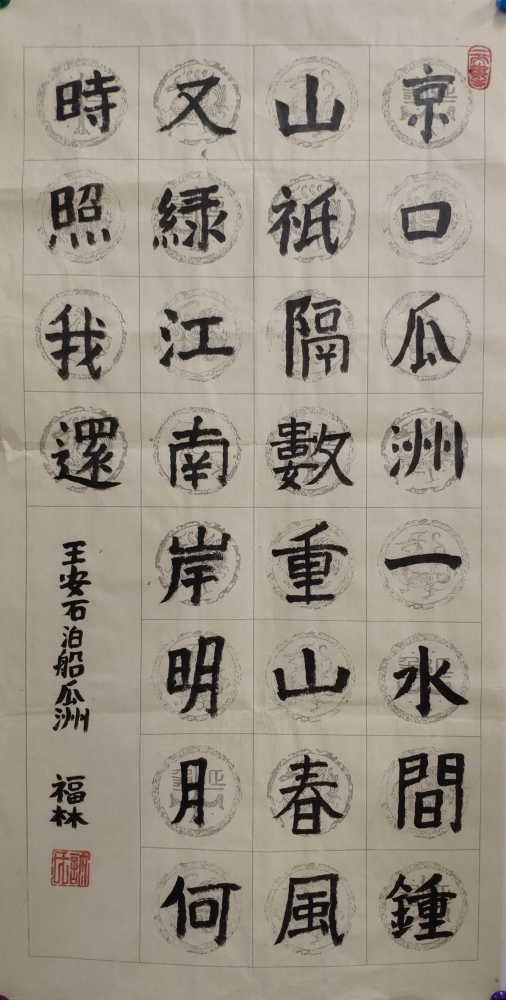 京口瓜洲一水間鍾
山祇隔數重山春風
又綠江南岸明月何
時照我還
王安石泊船瓜洲
福林